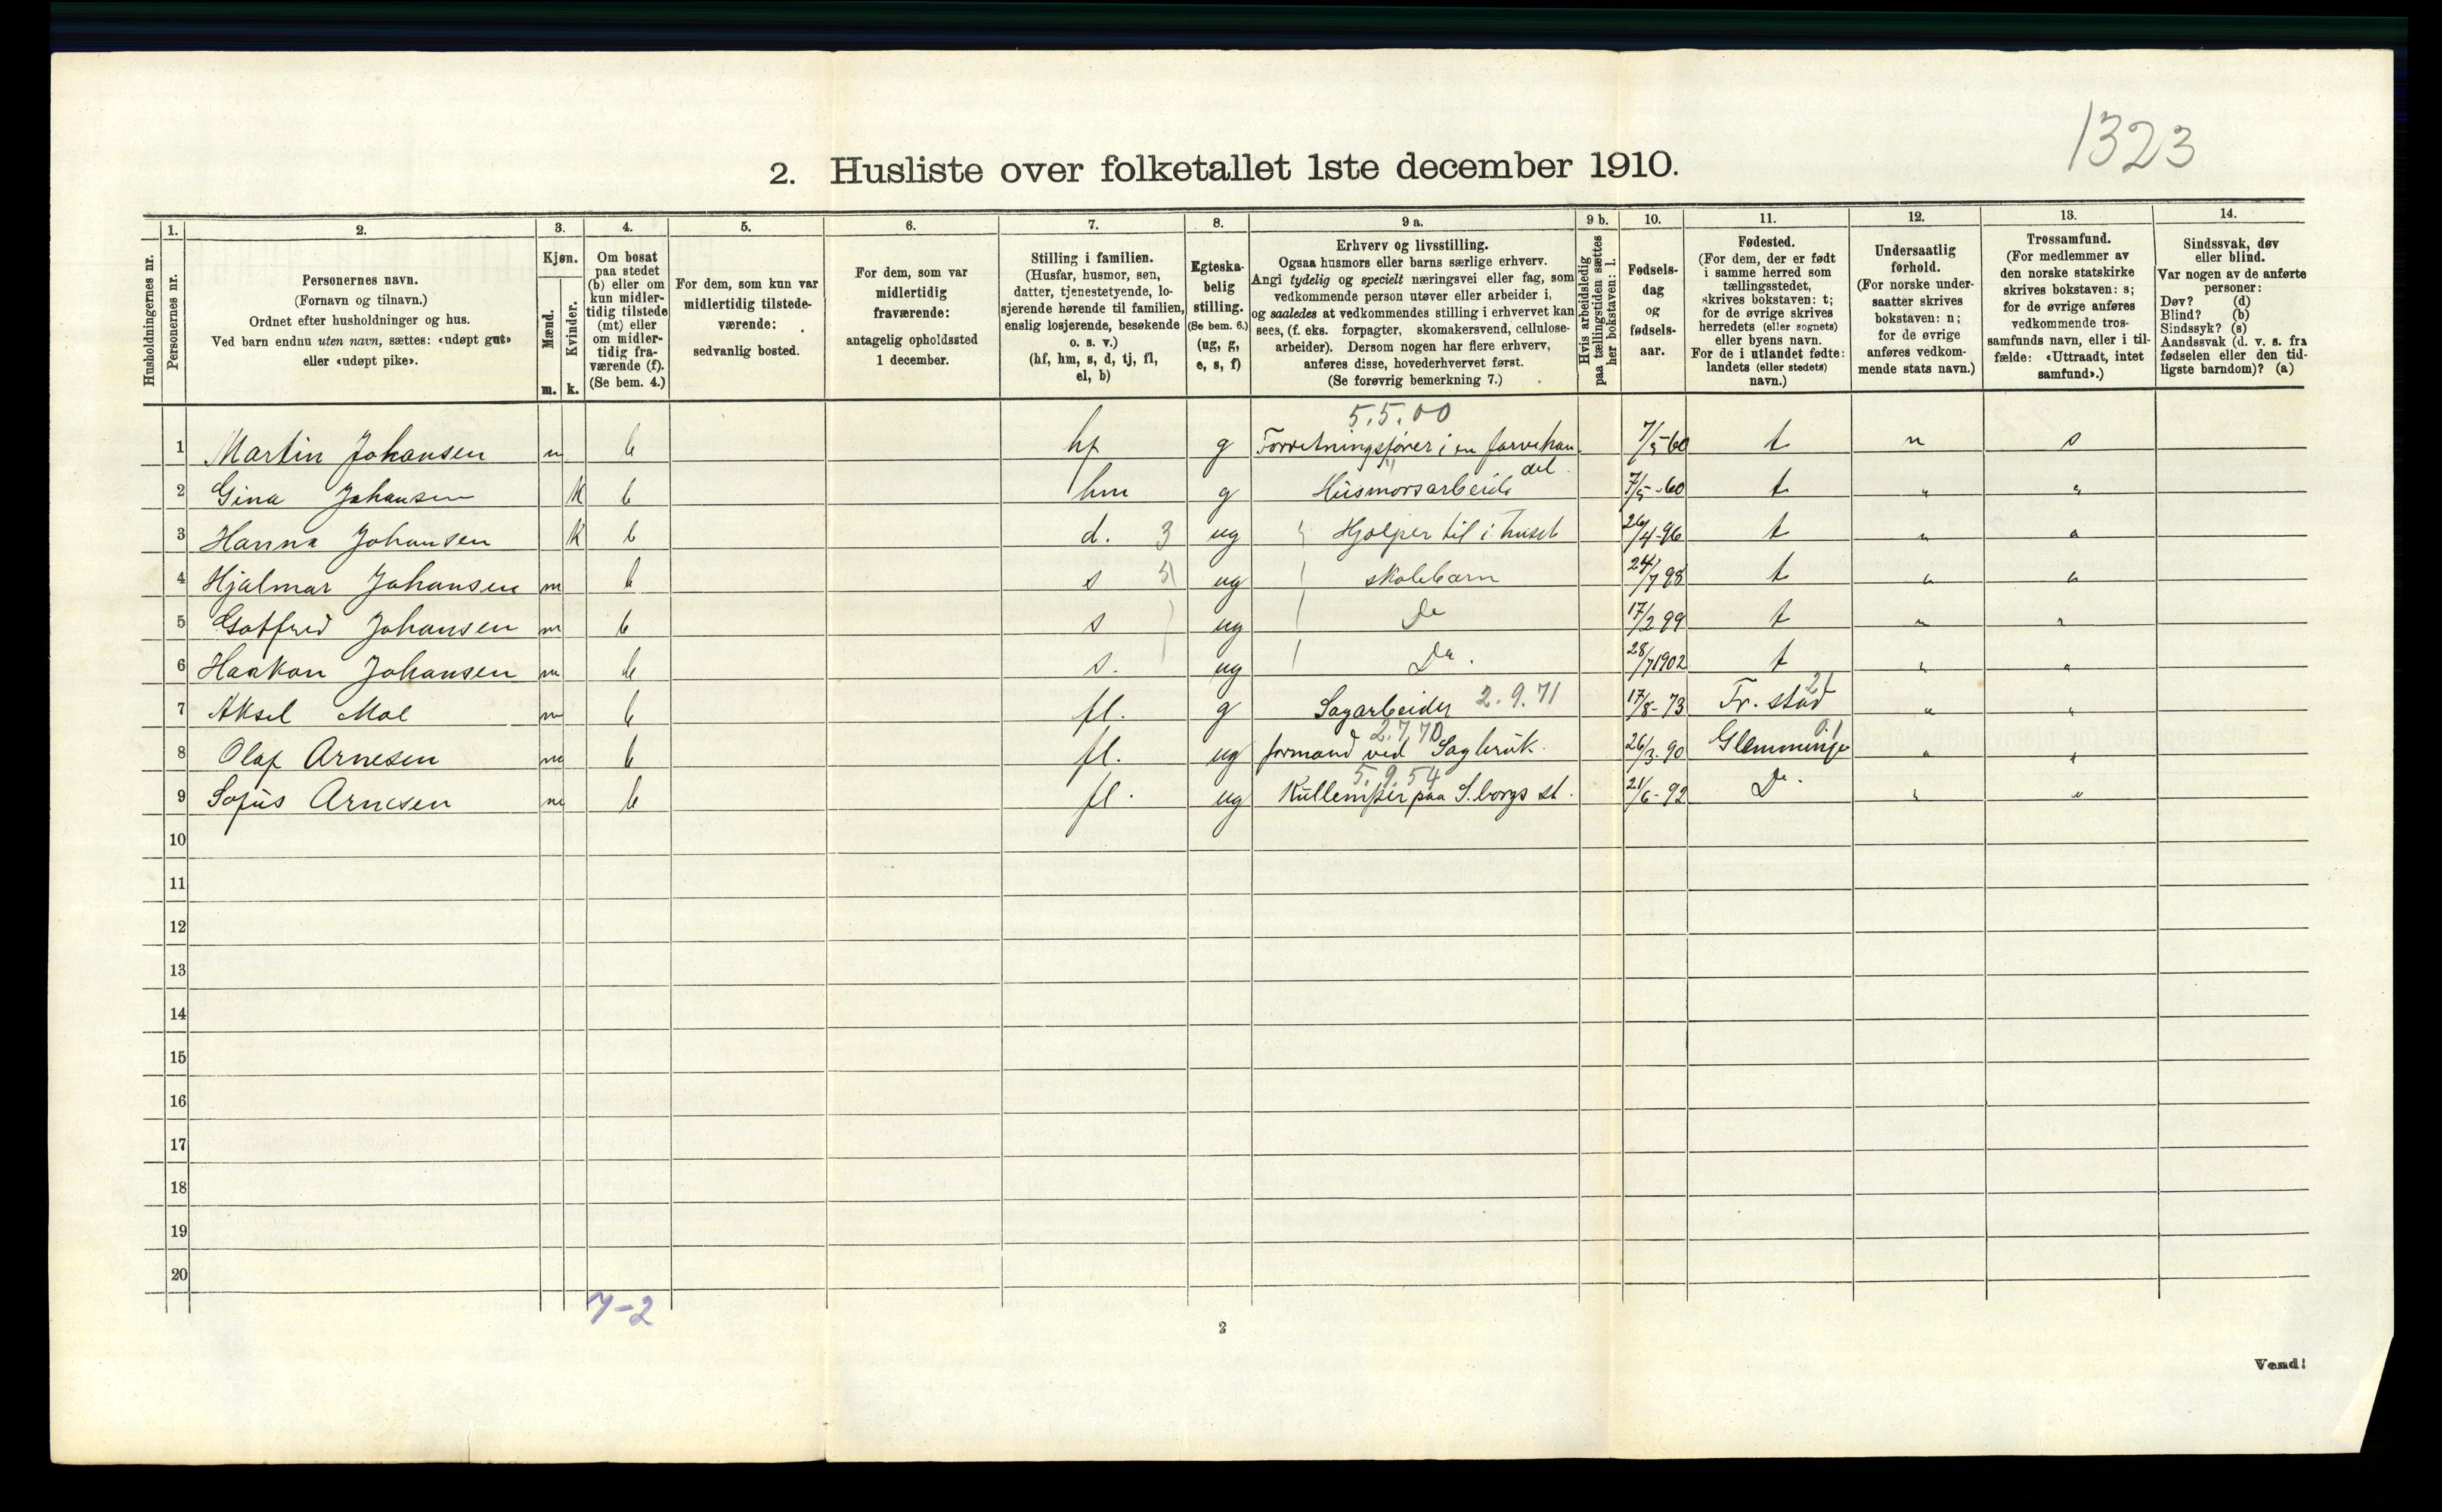 1323
2. Husliste over folketallet 1ste december 1910.
Husholdningernes nr.
1. Personernes nr.
2. Personernes navn.
(Fornavn og tilnavn.)
Ordnet efter husholdninger og hus.
Ved barn endnu uten navn, sættes: «udøpt gut»
eller «udøpt pike».
3. Kjøn.
Mænd. m.
Kvinder. k.
4. Om bosat
paa stedet
(b) eller om
kun midler-
tidig tilstede
(mt) eller
om midler-
tidig fra-
værende (f).
(Se bem. 4.)
5. For dem, som kun var
midlertidig tilstede-
værende:
sedvanlig bosted.
6. For dem, som var
midlertidig
fraværende:
antagelig opholdssted
1 december.
7. Stilling i familien.
(Husfar, husmor, søn,
datter, tjenestetyende, lo-
sjerende hørende til familien,
enslig losjerende, besøkende
o. s. v.)
(hf, hm, s, d, tj, fl,
el, b)
8. Egteska-
belig
stilling.
(Se bem. 6.)
(ug, g,
e, s, f)
9 a. Erhverv og livsstilling.
Ogsaa husmors eller barns særlige erhverv.
Angi tydelig og specielt næringsvei eller fag, som
vedkommende person utøver eller arbeider i,
og saaledes at vedkommendes stilling i erhvervet kan
sees, (f. eks. forpagter, skomakersvend, cellulose-
arbeider). Dersom nogen har flere erhverv,
anføres disse, hovederhvervet først.
(Se forøvrig bemerkning 7.)
9 b. Hvis arbeidsledig
paa tællingstiden sættes
her bokstaven: l.
10. Fødsels-
dag
og
fødsels-
aar.
11. Fødested.
(For dem, der er født
i samme herred som
tællingsstedet,
skrives bokstaven: t;
for de øvrige skrives
herredets (eller sognets)
eller byens navn.
For de i utlandet fødte:
landets (eller stedets)
navn.)
12. Undersaatlig
forhold.
(For norske under-
saatter skrives
bokstaven: n;
for de øvrige
anføres vedkom-
mende stats navn.)
13. Trossamfund.
(For medlemmer av
den norske statskirke
skrives bokstaven: s;
for de øvrige anføres
vedkommende tros-
samfunds navn, eller i til-
fælde: «Uttraadt, intet
samfund».)
14. Sindssvak, døv
eller blind.
Var nogen av de anførte
personer:
Døv? (d)
Blind? (b)
Sindssyk? (s)
Aandssvak (d. v. s. fra
fødselen eller den tid-
ligste barndom)? (a)
5.5.00
1 Martin Johansen m b hf g Forretningsfører i en farvehan 7/5-60 t n s
del
2 Gina Johansen K b hm g Husmorsarbeide 7/5-60 t " "
3 Hanna Johansen K b d. 3 ug Hjælper til i huset 26/4-96 t " "
4 Hjalmar Johansen m b s 5 ug skolebarn 24/7 98 t " "
5 Gotfred Johansen m b s ug Do 17/2 99 t " "
6 Haakon Johansen m b s. ug Do. 28/7 1902 t " "
7 Aksel Moe m b fl. g Sagarbeider 2.9.71 17/8-73 Fr. stad 21 " "
2.7.70 01
8 Olaf Arnesen m b fl. ug formand ved Sagbruk. 26/3-90 Glemminge " "
5.9.54
9 Sofus Arnesen m b fl. ug Kullemper paa S.borgs st. 21/6-92 Do. " "
10
11
12
13
14
15
16
17
18
19
20
7-2
2
Vend!